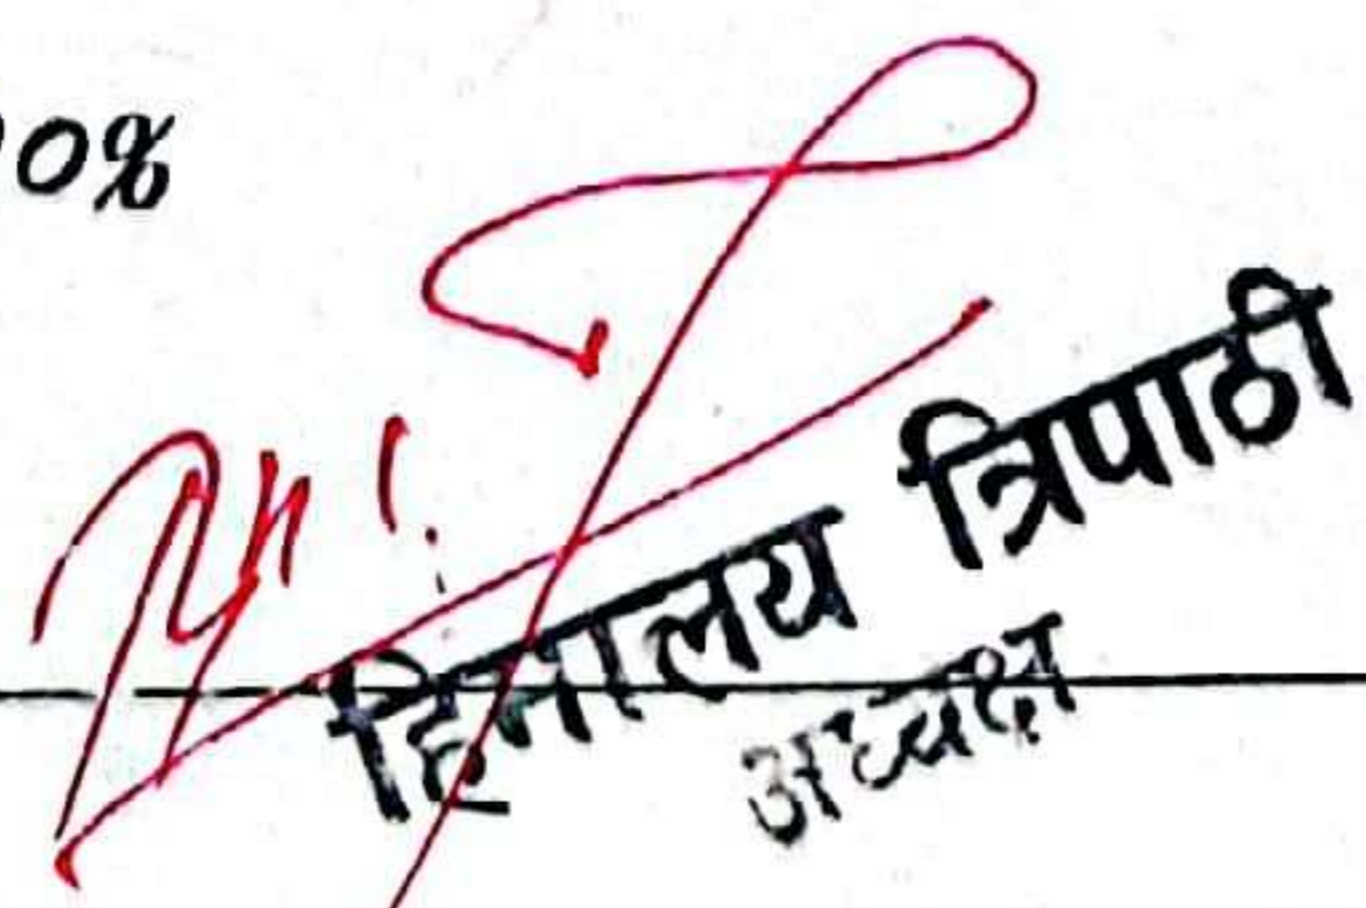 0%
हिमालय त्रिपाठी
अध्यक्ष